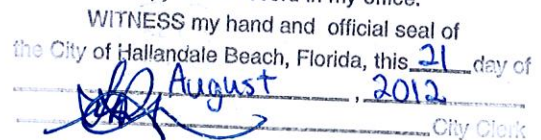 WITNESS my hand and official seal of
the City of Hallandale Beach, Florida, this 21 day of
August, 2012
City Clerk